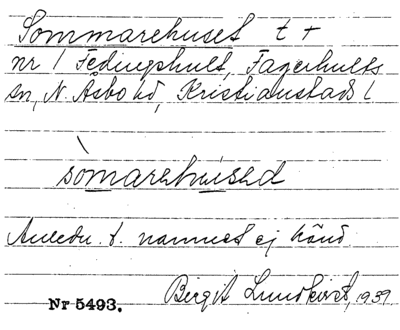 Sommarehuset t +
nr 1 Fedingshult, Fagerhults
sn, N. Åsbo hd, Kristianstads l
sòmarehuised
Anledn. t. namnet ej känd
Birgit Lundkvist, 1939
Nr 5493.